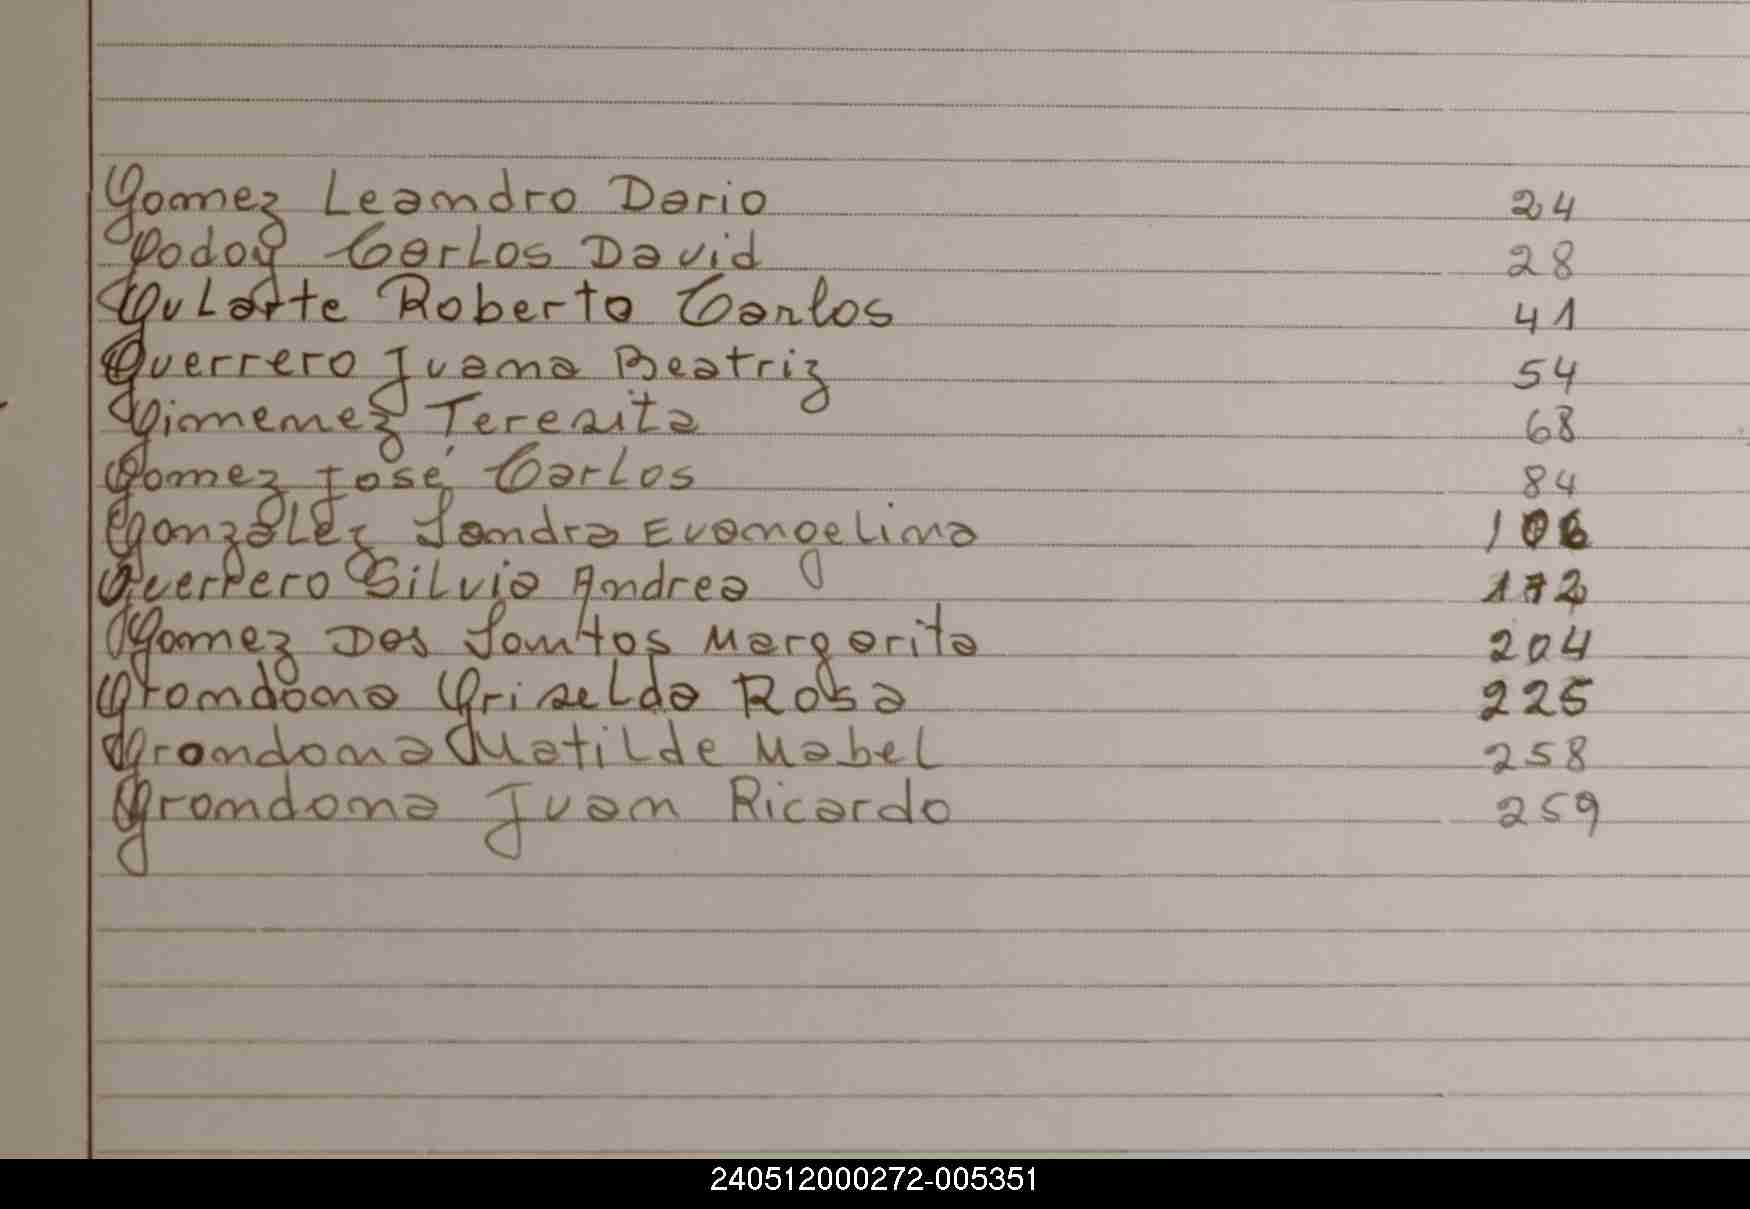 Gomez Leandro Dario 24
Godoy Carlos David 28
Gularte Roberto Carlos 41
Guerrero Juana Beatriz 54
Gimenez Teresita 68
Gomez José Carlos 84
González Sandra Evangelina 106
Guerrero Silvia Andrea 172
Gomez Dos Santos Margarita 204
Grondona Griselda Rosa 225
Grondona Matilde Mabel 258
Grondona Juan Ricardo 259
240512000272-005351